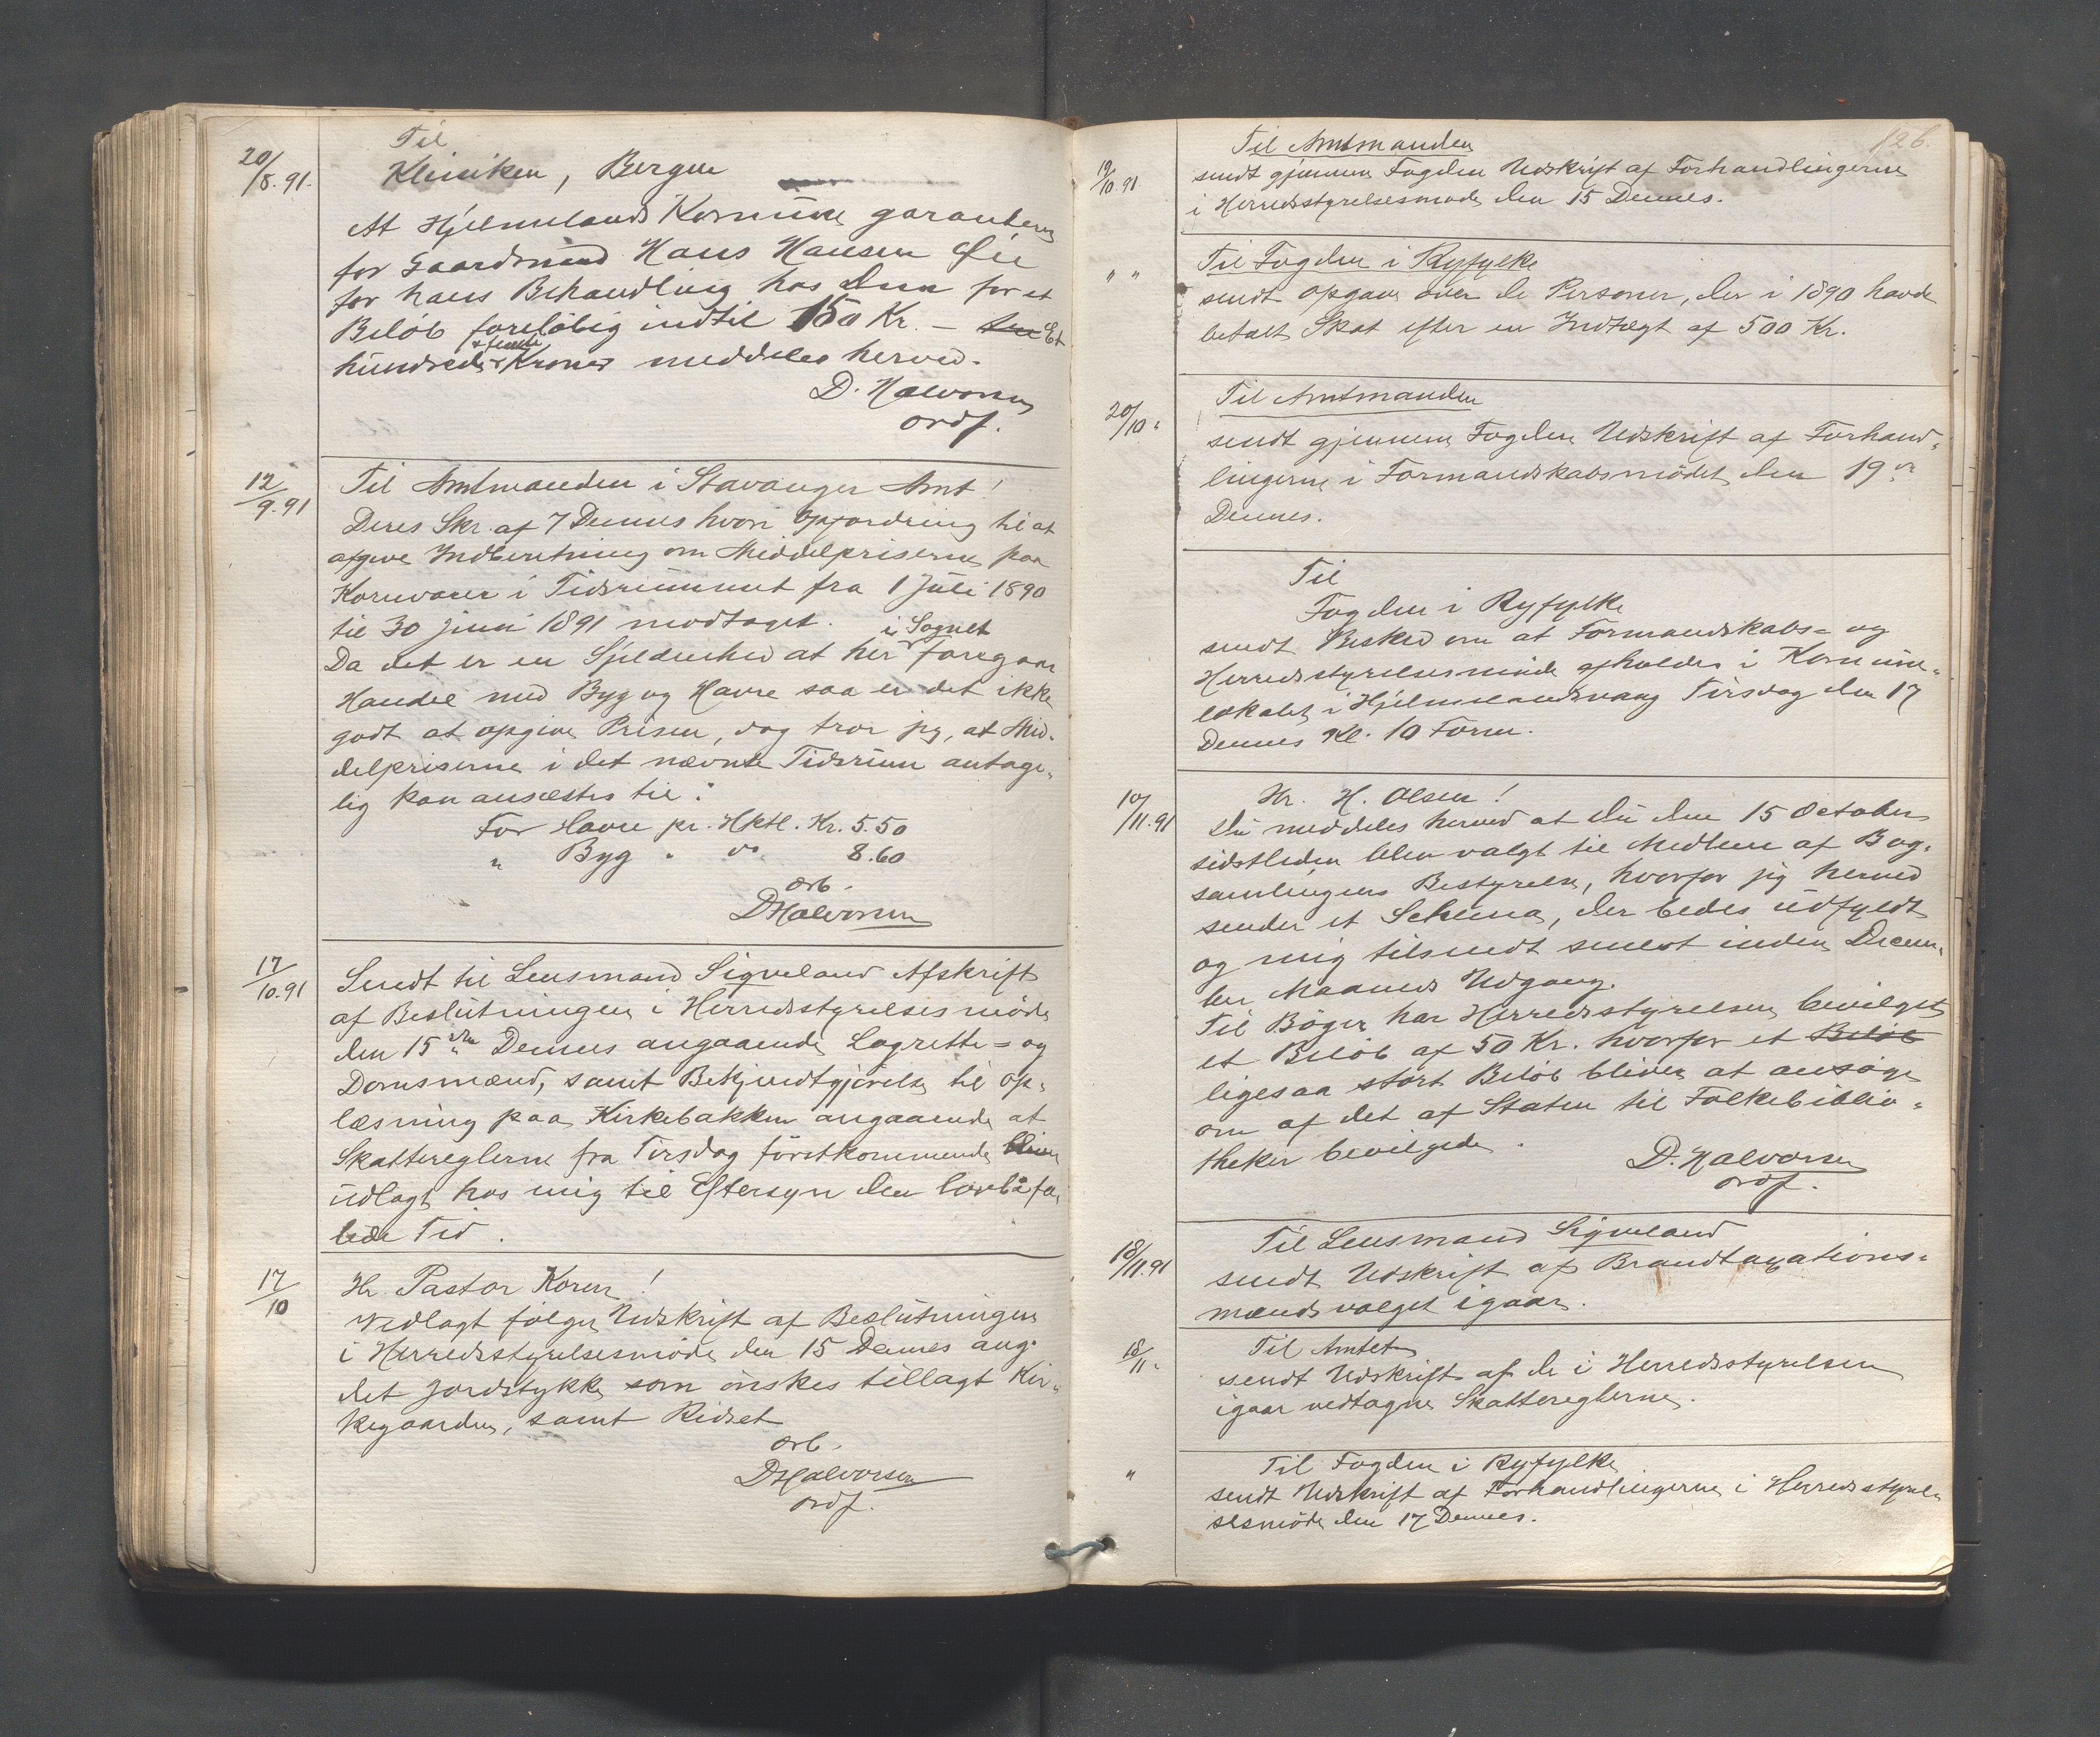 20/8.91.
Til
Kliniken, Bergen
At Hjelmelands Komune garanterer
for Gaardmand Hans Hansen Øie
for hans Behandling hos Dem for et
Beløb foreløbig indtil 150 Kr. – Et
hundrede & femti Kroner meddeles herved.
D. Halvorsen
ordf.
12/9.91
Til Amtmanden i Stavanger Amt!
Deres Skr. af 7 Dennes hvori Opfordring til at
afgive Indberetning om Middelpriserne paa
Kornvarer i Tidsrummet fra 1 Juli 1890
til 30 Juni 1891 modtaget.
Da det er en Sjeldenhed at her i Sognet foregaar
Handel med Byg og Havre saa er det ikke
godt at opgive Prisen, dog tror jeg, at Mid-
delpriserne i det nævnte Tidsrum antage-
lig kan ansættes til:
For Havre pr. Hktl. Kr. 5.50
" Byg " do. 8.60
Ærb.
D Halvorsen
17/10.91
Sendt til Lensmand Sigveland Afskrift
af Beslutningen i Herredsstyrelsesmøde
den 15de Dennes angaaende Lagrette- og
Domsmænd, samt Bekjendtgjørelse til Op-
læsning paa Kirkebakken angaaende at
Skattereglerne fra Tirsdag førstkommende bliver
udlagt hos mig til Eftersyn den lovbefa-
lede Tid.
17/10
Hr. Pastor Koren!
Vedlagt følger Udskrift af Beslutningen
i Herredsstyrelsesmøde den 15 Dennes ang.
det Jordstykke som ønskes tillagt Kir-
kegaarden, samt Ridset
Ærb.
D Halvorsen
ordf.
126.
19/10 91
Til Amtmanden
sendt gjennem Fogden Udskrift af Forhandlingerne
i Herredsstyrelsesmøde den 15 Dennes.
" "
Til Fogden i Ryfylke
sendt Opgave over de Personer, der i 1890 havde
betalt Skat efter en Indtægt af 500 Kr.
20/10 "
Til Amtmanden
sendt gjennem Fogden Udskrift af Forhand-
lingerne i Formandskabsmødet den 19de
Dennes.
Til
Fogden i Ryfylke
sendt Besked om at Formandskabs- og
Herredsstyrelsesmøde afholdes i Komune-
lokalet i Hjelmelandsvaag Tirsdag den 17
Dennes Kl. 10 Form.
10/11.91
Hr. H. Olsen!
Du meddeles herved at Du den 15 October
sidstleden blev valgt til Medlem af Bog-
samlingens Bestyrelse, hvorfor jeg herved
sender et Schema, der bedes udfyldt
og mig tilsendt senest inden Decem-
ber Maaneds Udgang.
Til Bøger har Herredsstyrelsen bevilget
et Beløb af 50 Kr. hvorfor et Beløb
ligesaa stort Beløb bliver at ansøge
om af det af Staten til Folkebiblio-
theker bevilgede.
D. Halvorsen
ordf.
18/11.91
Til Lensmand Sigveland
sendt Udskrift af Brandtaxations-
mandsvalget igaar.
18/11 "
Til Amtet
sendt Udskrift af de i Herredsstyrelsen
igaar vedtagne Skatteregler.
"
Til Fogden i Ryfylke
sendt Udskrift af Forhandlingerne i Herredsstyrel-
sesmøde den 17 Dennes.